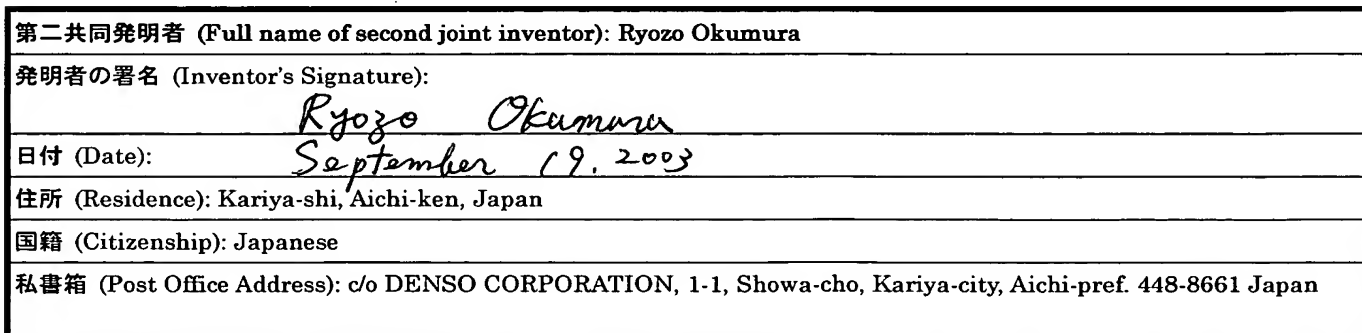 第二共同発明者 (Full name of second joint inventor): Ryozo Okumura
発明者の署名 (Inventor's Signature):
Ryozo Okumura
日付 (Date): September 19. 2003
住所 (Residence): Kariya-shi, Aichi-ken, Japan
国籍 (Citizenship): Japanese
私書箱 (Post Office Address): c/o DENSO CORPORATION, 1-1, Showa-cho, Kariya-city, Aichi-pref. 448-8661 Japan